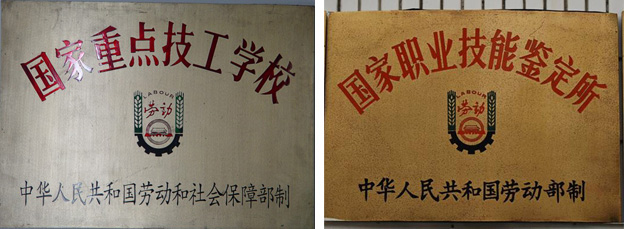 国家重点技工学校
LABOUR
劳动
中华人民共和国劳动和社会保障部制
国家职业技能鉴定所
LABOUR
劳动
中华人民共和国劳动部制